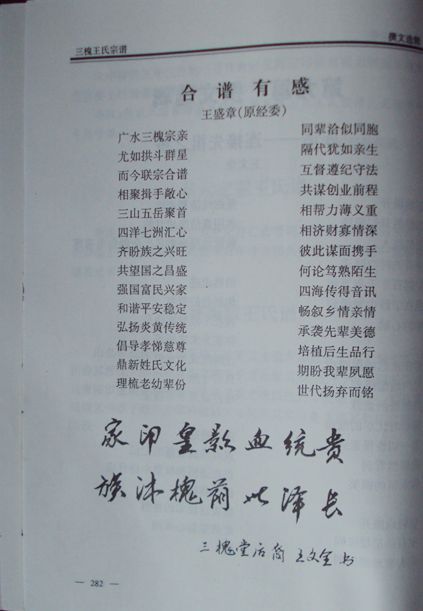 三槐王氏宗谱
撰文选辑
合谱有感
王盛章(原经委)
广水三槐宗亲
尤如拱斗群星
而今联宗合谱
相聚揖手敞心
三山五岳聚首
四洋七洲汇心
齐盼族之兴旺
共望国之昌盛
强国富民兴家
和谐平安稳定
弘扬炎黄传统
倡导孝悌慈尊
鼎新姓氏文化
理梳老幼辈份
同辈洽似同胞
隔代犹如亲生
互督遵纪守法
共谋创业前程
相帮力薄义重
相济财寡情深
彼此谋面携手
何论笃熟陌生
四海传得音讯
畅叙乡情亲情
承袭先辈美德
培植后生品行
期盼我辈夙愿
世代扬弃而铭
家印皇影血统贵
族沐槐荫世泽长
三槐堂后裔 王文全 书
— 282 —